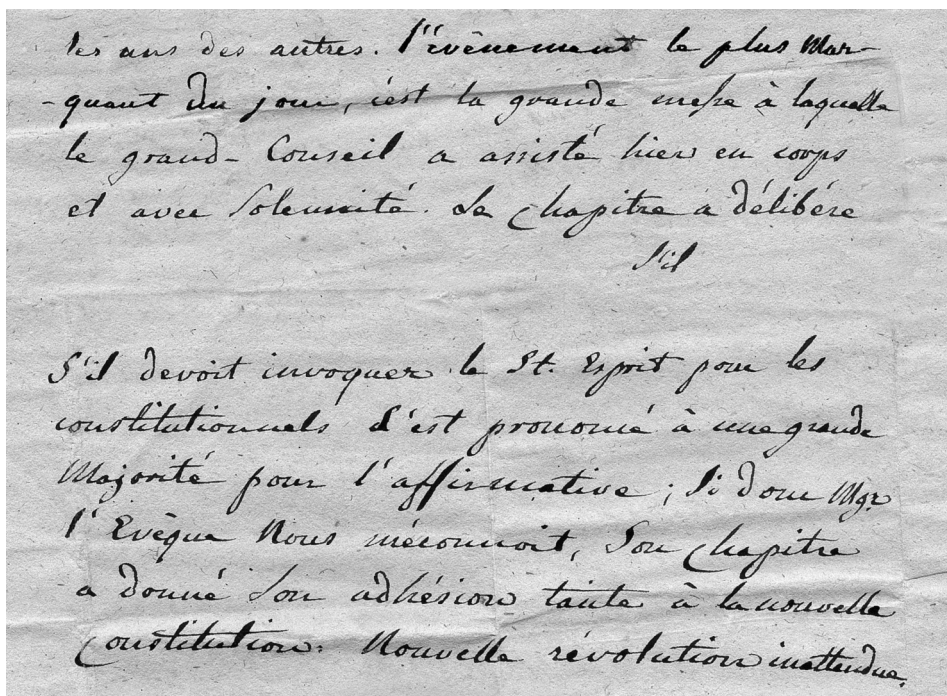 les uns des autres. l'événement le plus Mar-
-quant du jour, c'est la grande messe à laquelle
le grand-Conseil a assisté hier en corps
et avec Solennité. Le Chapitre a délibéré
S'il
S'il devoit invoquer le St. Esprit pour les
constitutionnels S'est prononcé à une grande
Majorité pour l'affirmative; Si donc Mgr.
l'Evêque Nous méconnoit, Son Chapitre
a donné Son adhésion tacite à la nouvelle
Constitution. Nouvelle révolution inattendue.